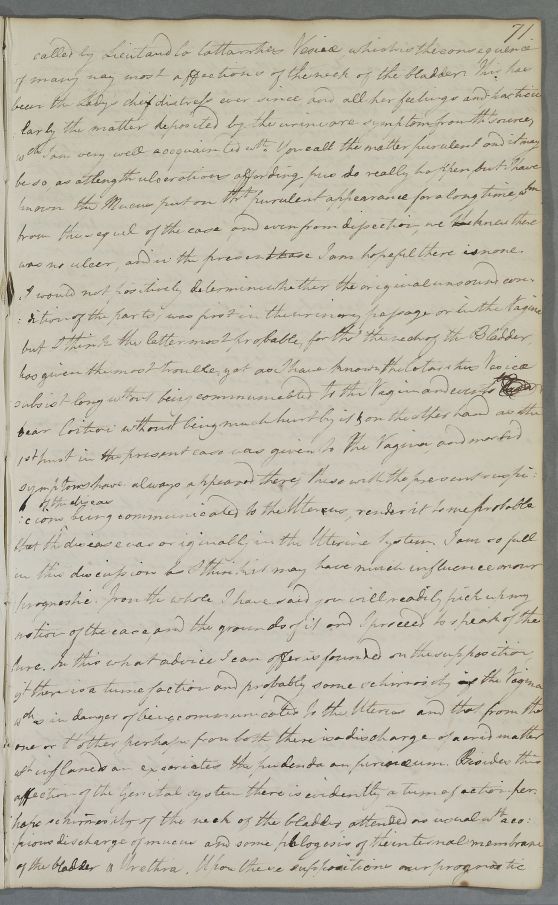 71.
called by Lieutaud la Cattarrhus Vesicæ which is the consequence
of many nay most affections of the neck of the bladder. This has
been the Ladys chief distress ever since and all her feelings and particu
larly the matter deposited by the urine are symptom from this source,
wth I am very well acquainted wth. You call the matter purulent and it may
be so, as at length ulceration affording pus do really happen, but I have
known the Mucus put on tht purulent appearance for a long time, when
from the sequel of the case and even from dissection, we knew there
was no ulcer, and in the present case I am hopeful there is none.
I would not positively determine whether the original unsound con:
:dition of the parts, was first in the urinary passage or in the Vagina
but I think the latter most probable, for tho' the neck of the Bladder
has given the most trouble, yet as I have known the Catarrhus Vesicæ
subsist long without being communicated to the Vagina and even to
bear Coition without being much hurt by it & on the other hand as the
1st hurt in the present case was given to the Vagina and morbid
symptoms have always appeared there, these with the present suspi:
of the diseas
:cions being communicated to the Uterus, render it to me probable
that the disease was originally in the Uterine System. I am so full
in this discussion as I think it may have much influence on our
prognostic. From the whole I have said you will readily pick up my
notion of the case and the grounds of it and I proceed to speak of the
Cure. In this what advice I can offer is founded on the supposition
yt there is a tumefaction and probably some schirrosity of the Vagina
wth is in danger of being communicated to the Uterus and that from the
one or t'other perhaps from both there is a discharge of acrid matter
wch inflames an excoriates the pudenda an perinæum. Besides this
affection of the Genital system there is evidently a tumefaction per:
haps schirrosity of the neck of the bladder attended as usual wth a co:
pious discharge of mucus and some phlogosis of the internal membrane
of the bladder & Urethra. Upon these suppositions our prognostic